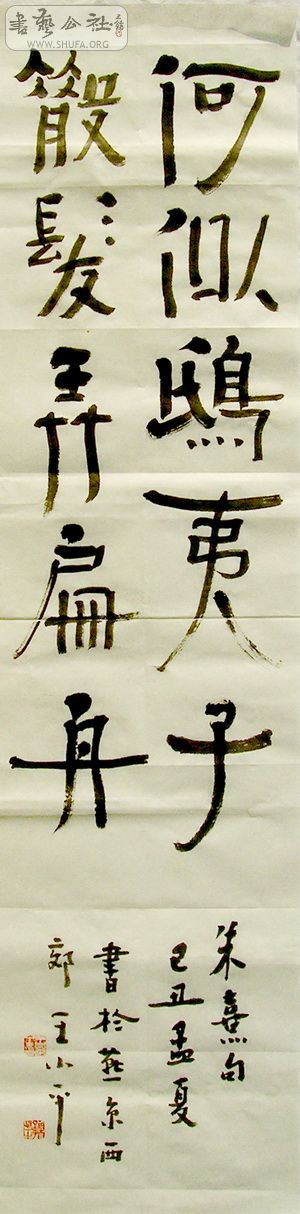 書藝公社
WWW.SHUFA.ORG
何似鴟夷子
散髮弄扁舟
朱熹句
己丑孟夏
書於燕京西
郊王小平